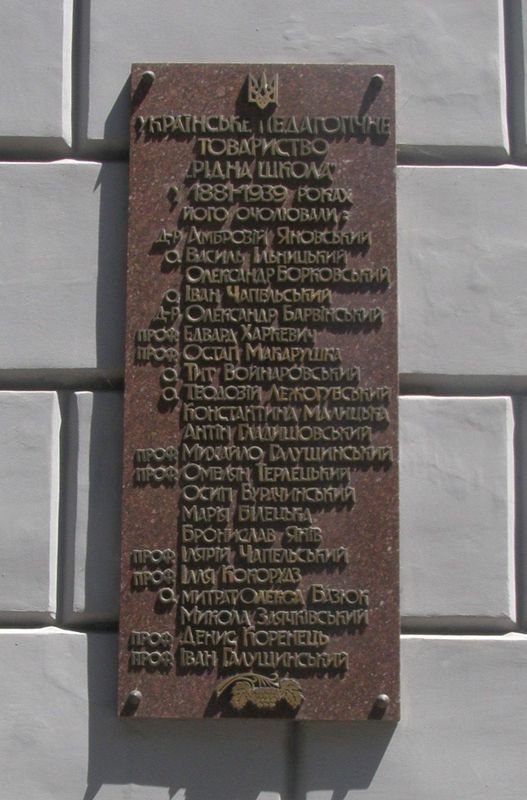 УКРАЇНСЬКЕ ПЕДАГОГІЧНЕ
ТОВАРИСТВО
"РІДНА ШКОЛА"
У 1881-1939 РОКАХ
ЙОГО ОЧОЛЮВАЛИ:
Д-Р АМБРОЗІЙ ЯНОВСЬКИЙ
О. ВАСИЛЬ ІЛЬНИЦЬКИЙ
ОЛЕКСАНДР БОРКОВСЬКИЙ
О. ІВАН ЧАПЕЛЬСЬКИЙ
Д-Р ОЛЕКСАНДР БАРВІНСЬКИЙ
ПРОФ. ЕДВАРД ХАРКЕВИЧ
ПРОФ. ОСТАП МАКАРУШКА
О. ТИТ ВОЙНАРОВСЬКИЙ
О. ТЕОДОЗІЙ ЛЕЖОГУВСЬКИЙ
КОНСТАНТИНА МАЛИЦЬКА
АНТІН ГЛАДИШОВСЬКИЙ
ПРОФ. МИХАЙЛО ГАЛУЩИНСЬКИЙ
ПРОФ. ОМЕЛЯН ТЕРЛЕЦЬКИЙ
ОСИП БУРАЧИНСЬКИЙ
МАРІЯ БІЛЕЦЬКА
БРОНИСЛАВ ЯНІВ
ПРОФ. ІЛЯРІЙ ЧАПЕЛЬСЬКИЙ
ПРОФ. ІЛЛЯ КОКОРУДЗ
О. МИТРАТ ОЛЕКСА БАЗЮК
МИКОЛА ЗАЯЧКІВСЬКИЙ
ПРОФ. ДЕНИС КОРЕНЕЦЬ
ПРОФ. ІВАН ГАЛУЩИНСЬКИЙ